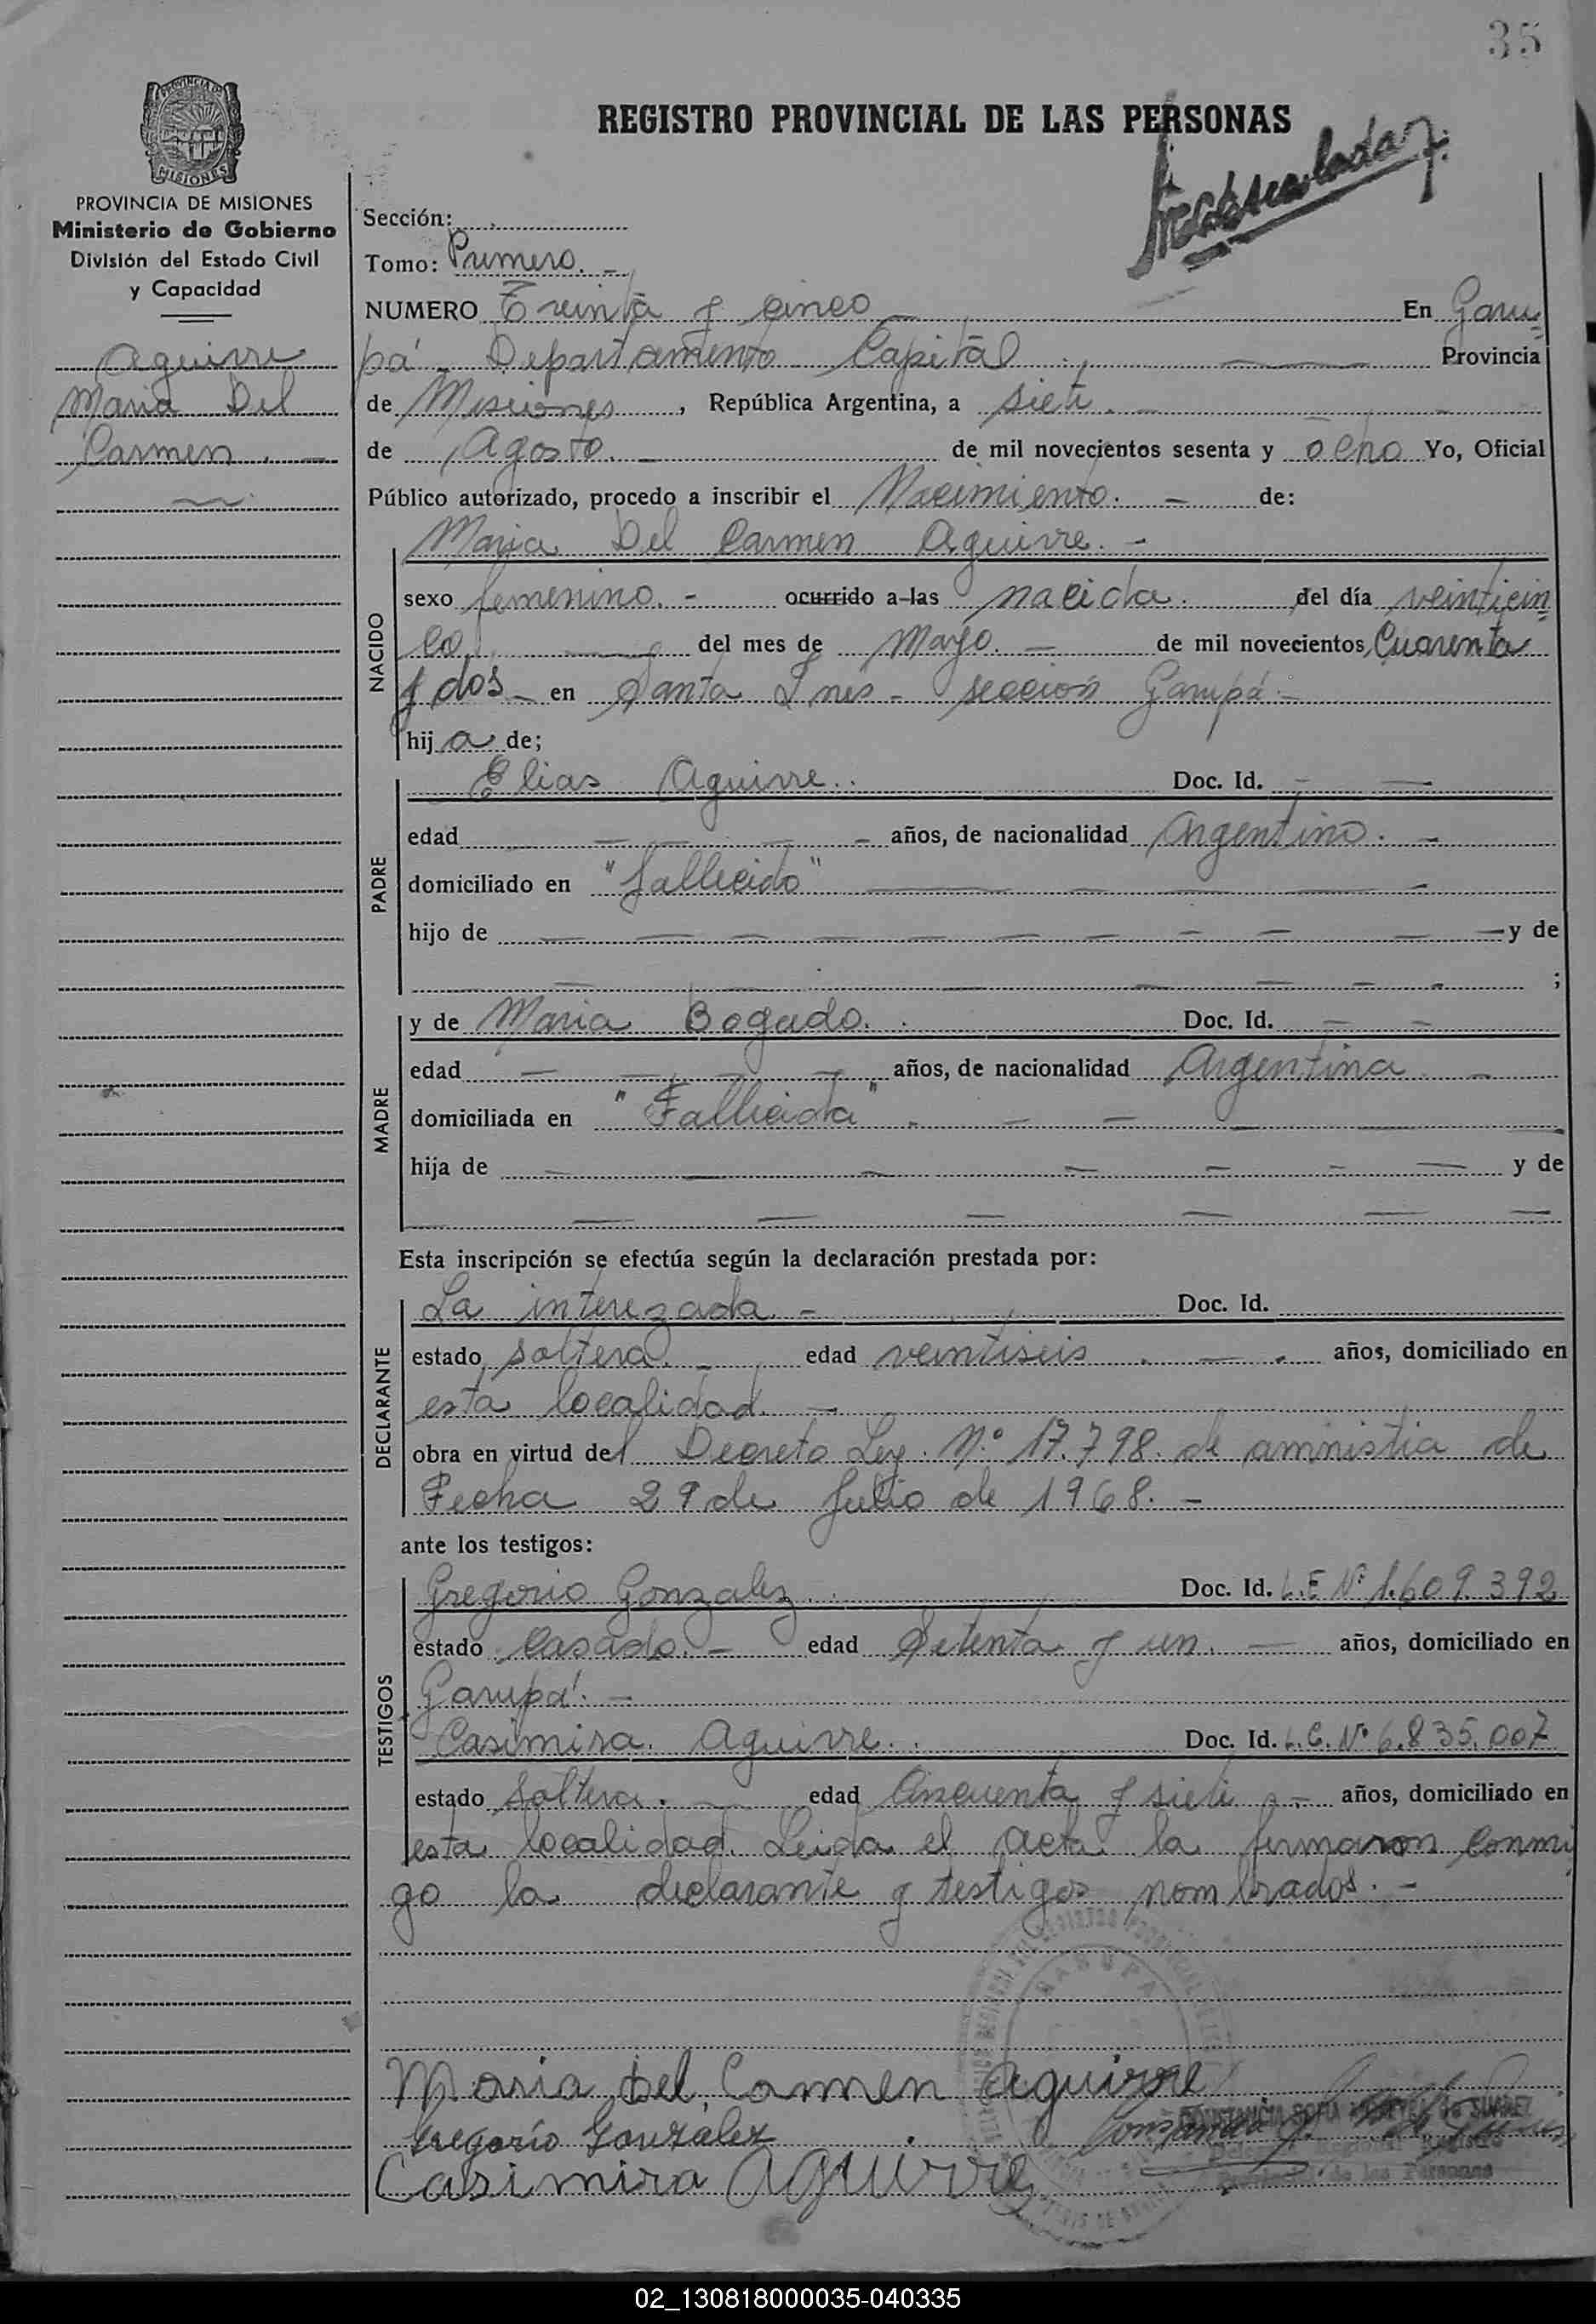 35
REGISTRO PROVINCIAL DE LAS PERSONAS
PROVINCIA DE
MISIONES
PROVINCIA DE MISIONES
Ministerio de Gobierno
División del Estado Civil
y Capacidad
Aguirre
Maria Del
Carmen. -
Sección:
Tomo: Primero. -
NUMERO Treinta y cinco En Garu=
pá Departamento Capital Provincia
de Misiones, República Argentina, a siete. -
de Agosto. - de mil novecientos sesenta y ocho Yo, Oficial
Público autorizado, procedo a inscribir el Nacimiento. - de:
Maria Del Carmen Aguirre. -
NACIDO
sexo femenino. - ocurrido a las nacida. del día veinticin=
co del mes de Mayo. - de mil novecientos Cuarenta
y dos - en Santa Ines - sección Garupá -
hija de;
PADRE
Elias Aguirre. Doc. Id. -
edad - años, de nacionalidad Argentino. -
domiciliado en "fallecido" -
hijo de - y de
- ;
MADRE
y de Maria Bogado. Doc. Id. -
edad - años, de nacionalidad Argentina -
domiciliada en "Fallecida" -
hija de - y de
-
Esta inscripción se efectúa según la declaración prestada por:
DECLARANTE
La interezada - Doc. Id.
estado soltera. - edad veintiseis - años, domiciliado en
esta localidad. -
obra en virtud del Decreto Ley. N.º 17.798. de amnistia de
Fecha 29 de Julio de 1968. -
ante los testigos:
TESTIGOS
Gregorio Gonzalez Doc. Id. L.E Nº 1.609.392
estado casado. - edad Setenta y un. - años, domiciliado en
Garupá. -
Casimira. Aguirre. Doc. Id. L.C. Nº 6.835.007
estado soltera. - edad Cincuenta y siete - años, domiciliado en
esta localidad. Leida el acta la firmaron conmi
go la declarante y testigos nombrados. -
GARUPA
Maria del Carmen Aguirre
Gregorio González
CONSTANCIA SOFIA DE SUAREZ
Regional Registro
Provincial de las Personas
Casimira Aguirre
02_130818000035-040335